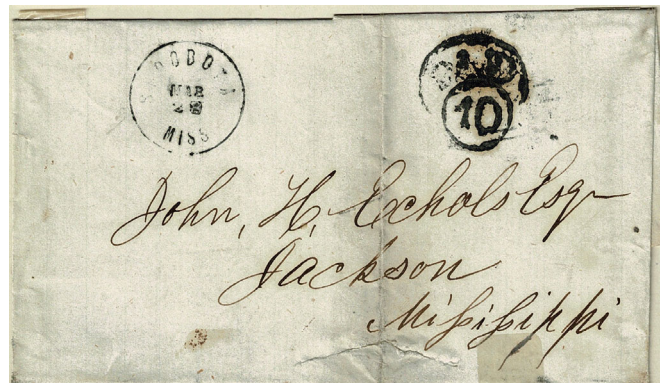 MAR
MISS
PAID
10
John, H, Echols Esqr
Jackson
Miſsiſsippi